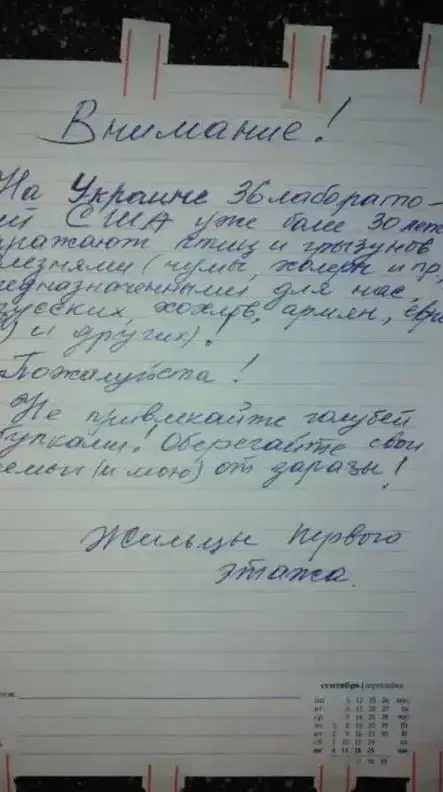 Внимание!
На Украине 36 лаборато-
ий США уже боле 30 лет
ражают птиц и грызунов
олезнями (чумы, холеры и пр,
едназначенными для нас,
русских, хохлов, армян, евре
) и других)!
Пожалуйста!
Не привлекайте голубей
булками! Оберегайте свои
емьи (и мою) от заразы!
Жильцы первого
этажа.
сентябрь |